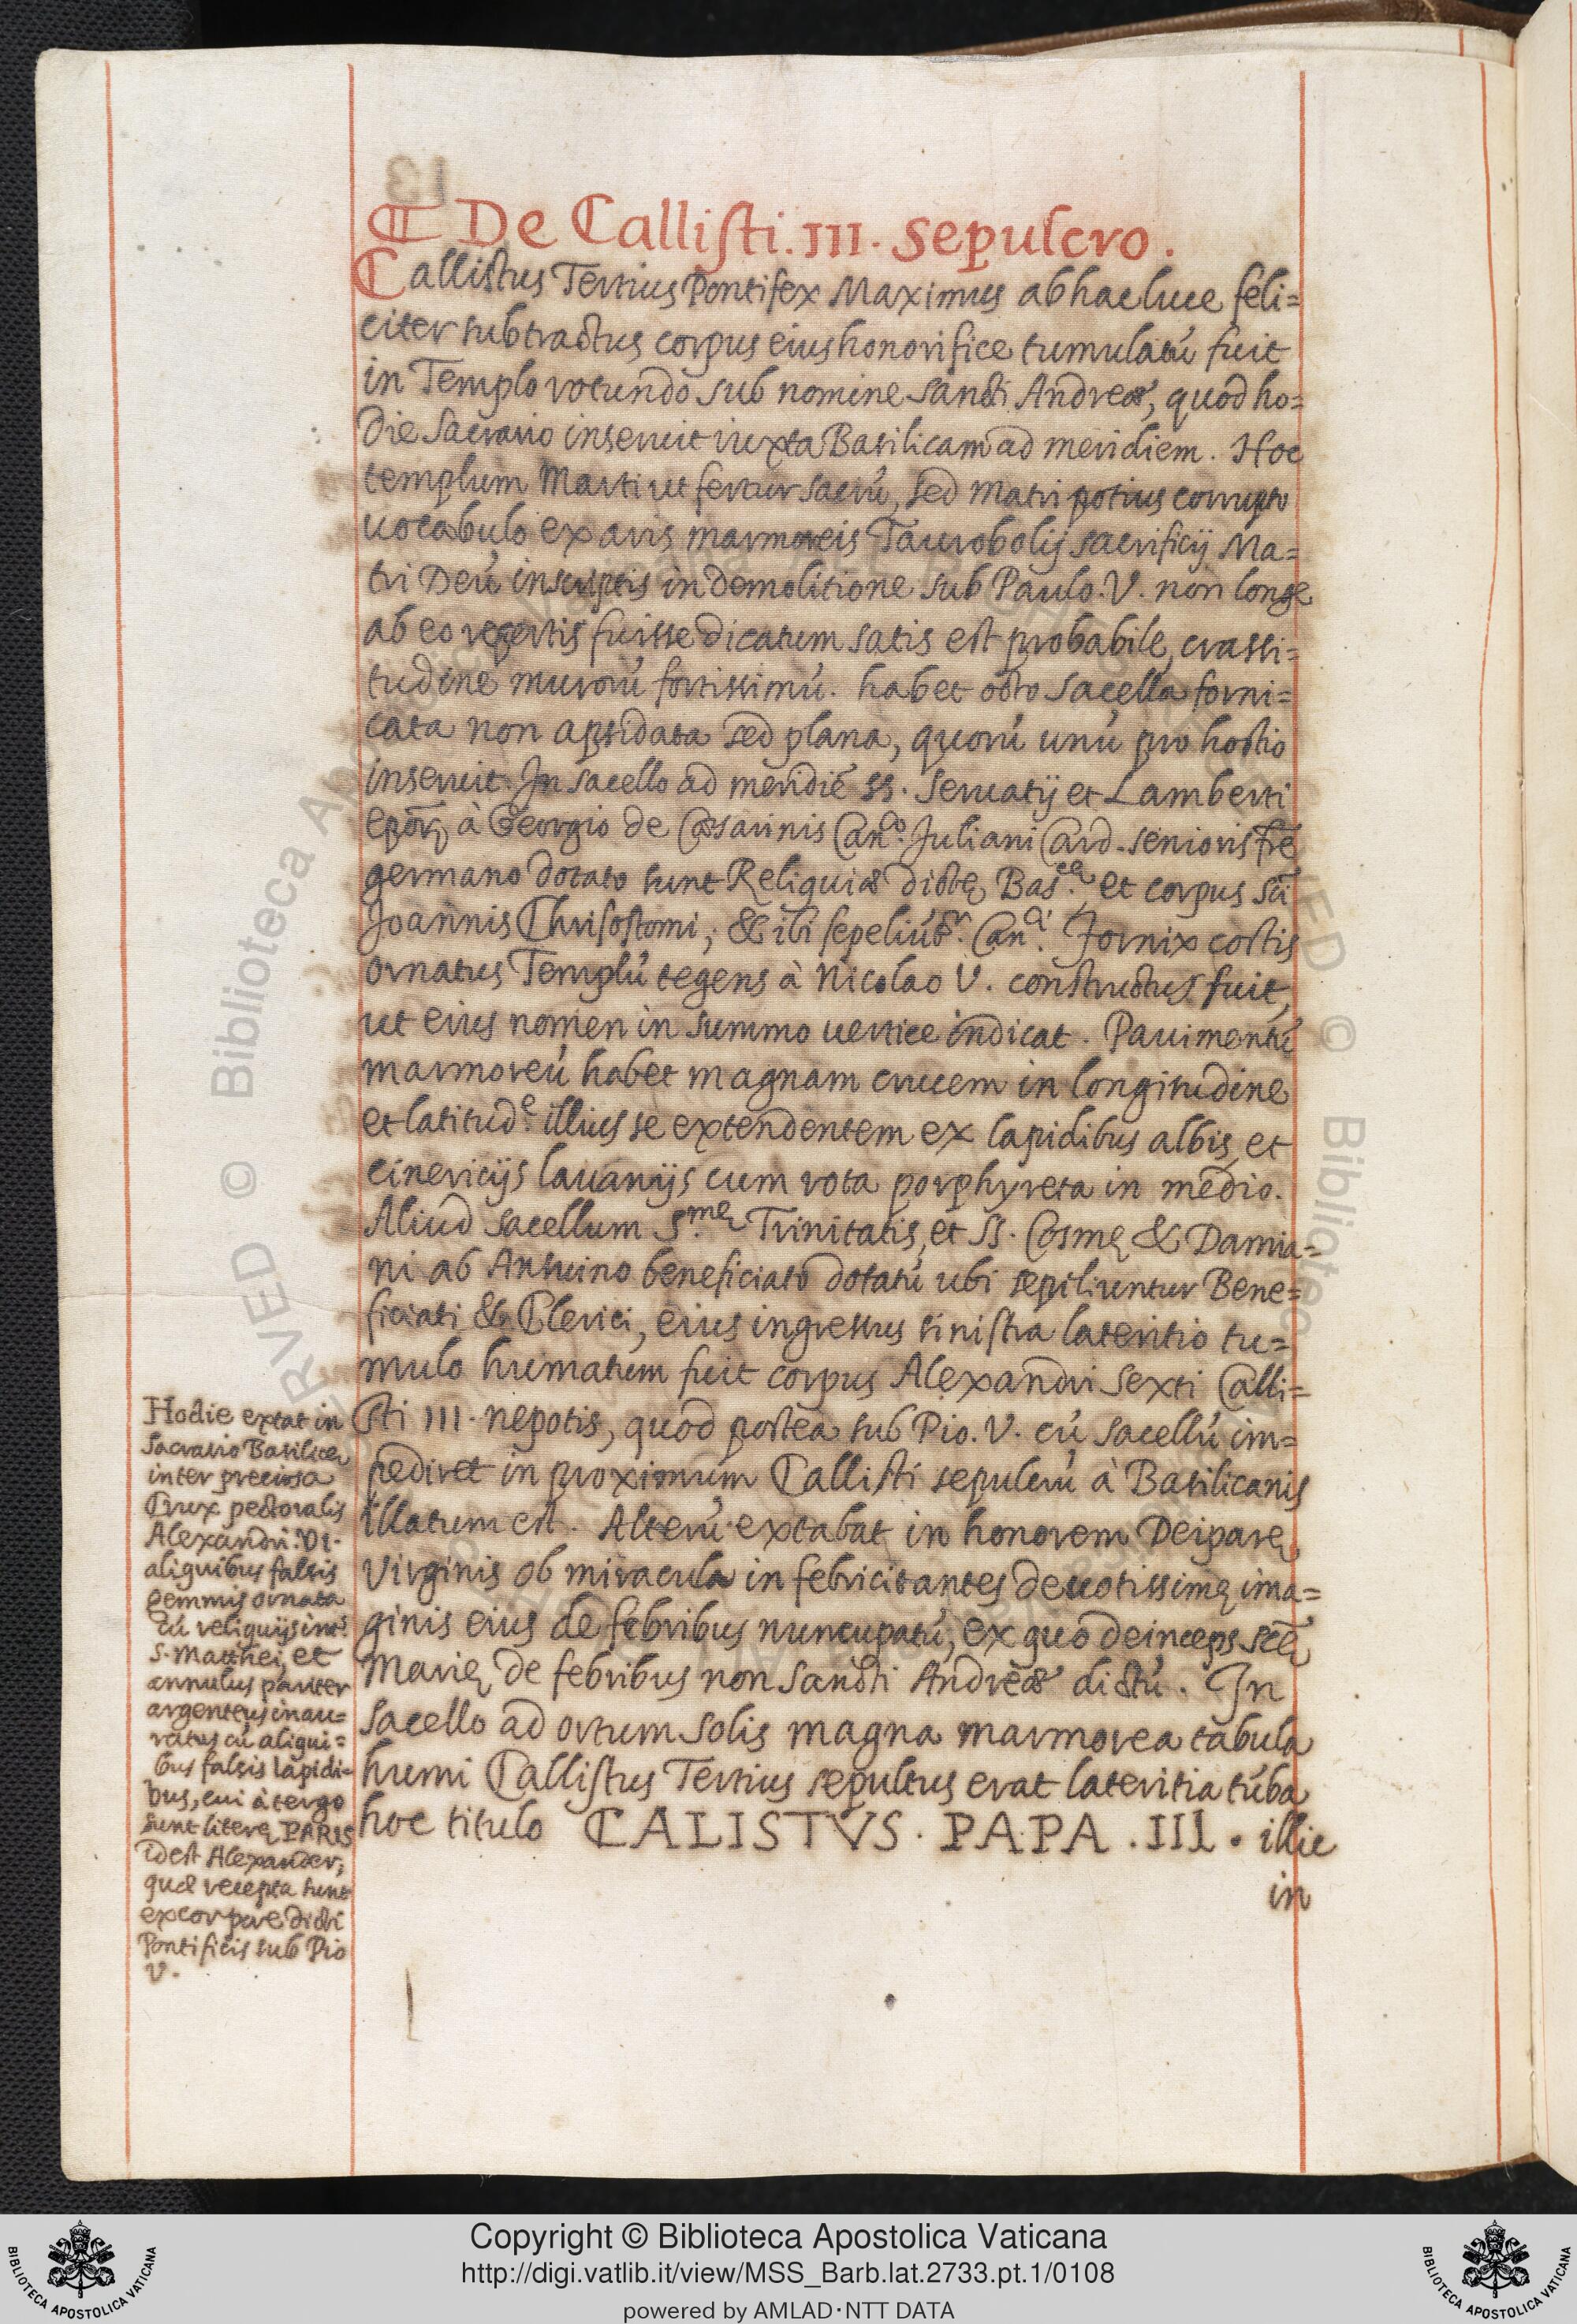 De Callisti. III. sepulcro.
Callistus Tertius Pontifex Maximus ab hac luce feli=
citer subtractus corpus eius honorifice tumulatú fuit
in Templo rotundo sub nomine sancti Andreæ, quod ho=
die sacrario inseruit iuxta Basilicam ad meridiem. Hoc
templum Marti ut fertur sacrú, sed Matri potius corrupto
uocabulo ex aris marmoreis Taurobolij sacrificij Ma=
tri Deú inscriptis in demolitione sub Paulo. V. non longe
ab eo repertis fuisse dicatum satis est probabile, crassi=
tudine murorú fortissimú. habet octo sacella forni=
cata non apsidata sed plana, quorú unú pro hostio
inseruit. In sacello ad meridié SS. Seruatij et Lamberti
epõrꝫ à Georgio de Cæsarinis Can.co Juliani Card. senioris fre
germano dotato sunt Reliquiæ dictę Bas.cę, et corpus Sći
Joannis Chrisostomi, & ibi sepeliút.r Can.ci Fornix costis
ornatus Templú tegens à Nicolao V. constructus fuit,
ut eius nomen in summo uertice indicat. Pauimentú
marmoreú habet magnam crucem in longitudine
et latitud.e illius se extendentem ex lapidibus albis, et
cinericijs lauanijs cum rota porphyreta in medio.
Aliud sacellum S.mę Trinitatis, et SS. Cosmę & Damia=
ni ab Antuino beneficiato dotatú ubi sepiliuntur Bene=
ficiati & Clerici, eius ingressus sinistra lateritio tu=
mulo humatum fuit corpus Alexandri Sexti Calli=
sti III. nepotis, quod postea sub Pio. V. cú sacellú im=
pediret in proximum Callisti sepulcrú à Basilicanis
illatum est. Alterú extabat in honorem Deiparę
Virginis ob miracula in febricitantes deuotissimę ima=
ginis eius de febribus nuncupatú, ex quo deinceps scę
Marię de febribus non Sancti Andreæ dictú. In
sacello ad ortum solis magna marmorea tabula
humi Callistus Tertius sepultus erat lateritia túba
hoc titulo CALISTVS. PAPA. III. illic
in
Hodie extat in
sacrario Basilicę
inter preciosa
Crux pectoralis
Alexandri. VI.
aliquibus falsis
gemmis ornata
cú reliquijs
S. Matthei, et
annulus pariter
argenteus inau=
ratus cú aliqui=
bus falsis lapidi=
bus, cui à tergo
sunt literę PARIS
idest Alexander,
quæ recepta sunt
ex corpore dicti
Pontificis sub Pio
V.
Copyright © Biblioteca Apostolica Vaticana
http://digi.vatlib.it/view/MSS_Barb.lat.2733.pt.1/0108
powered by AMLAD·NTT DATA
BIBLIOTECA APOSTOLICA VATICANA
BIBLIOTECA APOSTOLICA VATICANA